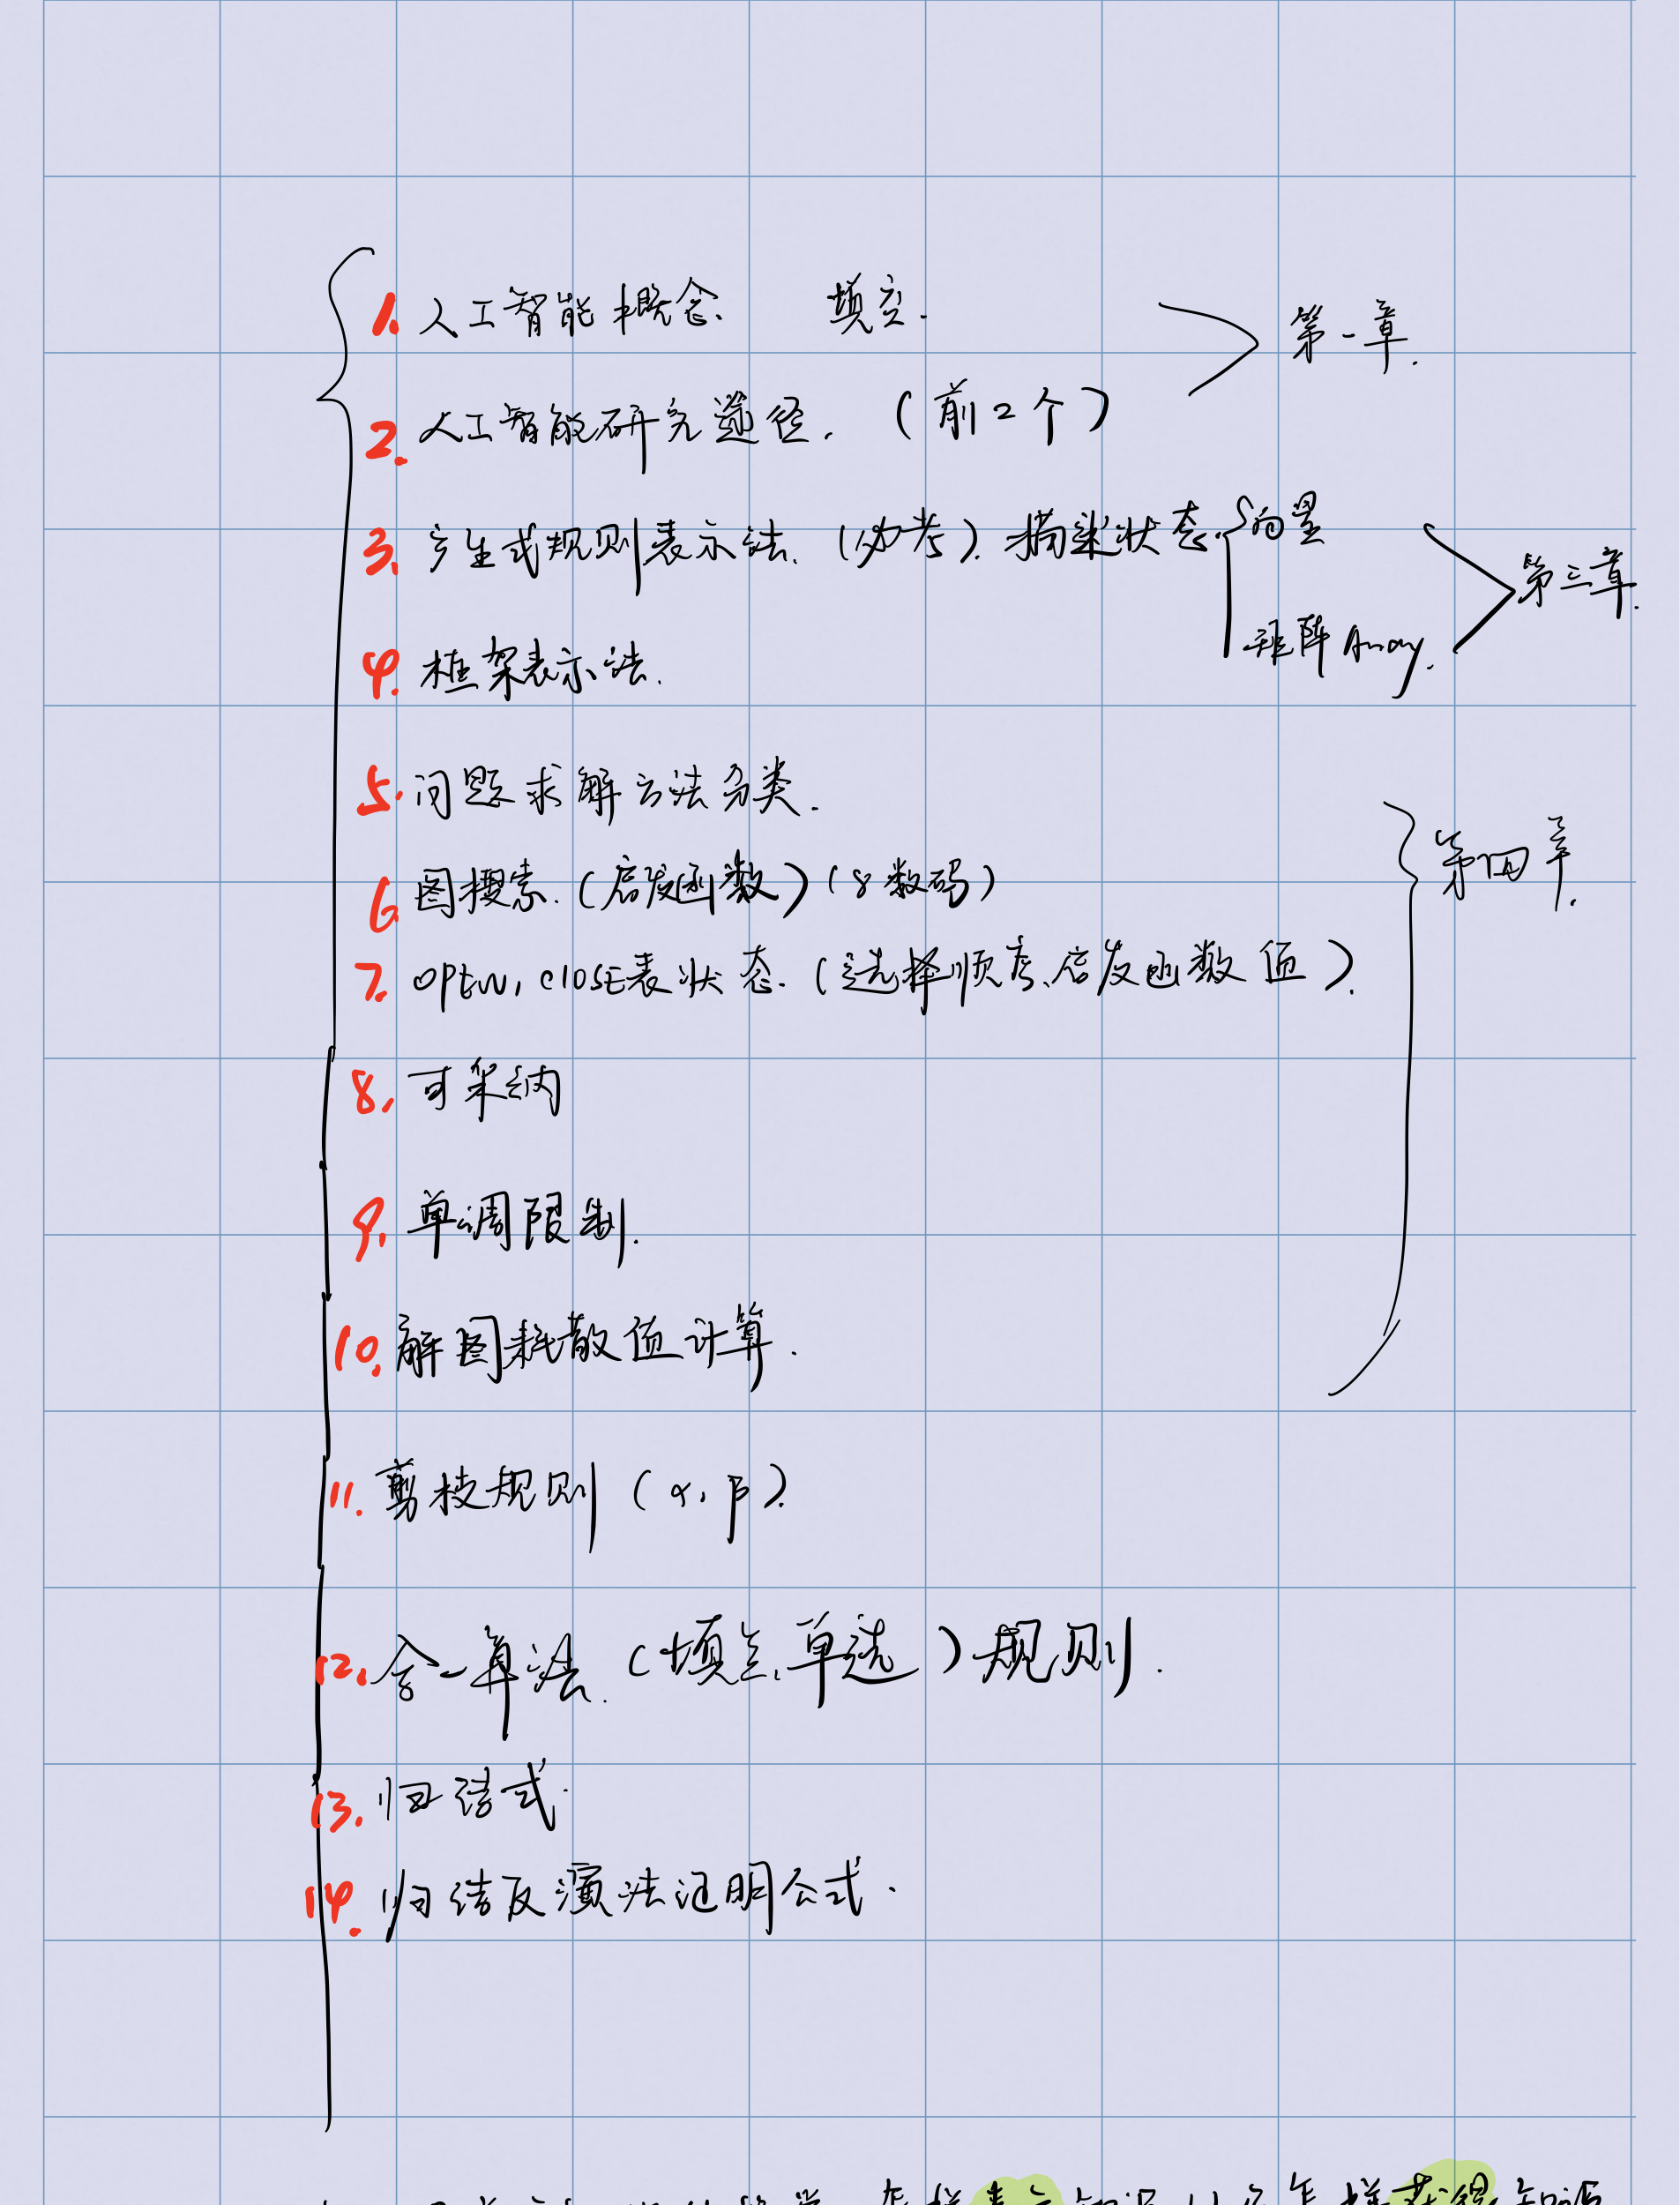 1. 人工智能概念. 填空. 第一章.
2. 人工智能研究途径. (前2个)
3. 产生式规则表示法. (必考). 描述状态. 向量
第三章.
矩阵 Array.
4. 框架表示法.
5. 问题求解方法分类.
第四章.
6. 图搜索. (启发函数) (8数码)
7. open, close表状态. (选择顺序、启发函数值).
8. 可采纳
9. 单调限制.
10. 解图耗散值计算.
11. 剪枝规则 (α, β).
12. 合一算法. (填空, 单选) 规则.
13. 归结式.
14. 归结反演法证明公式.